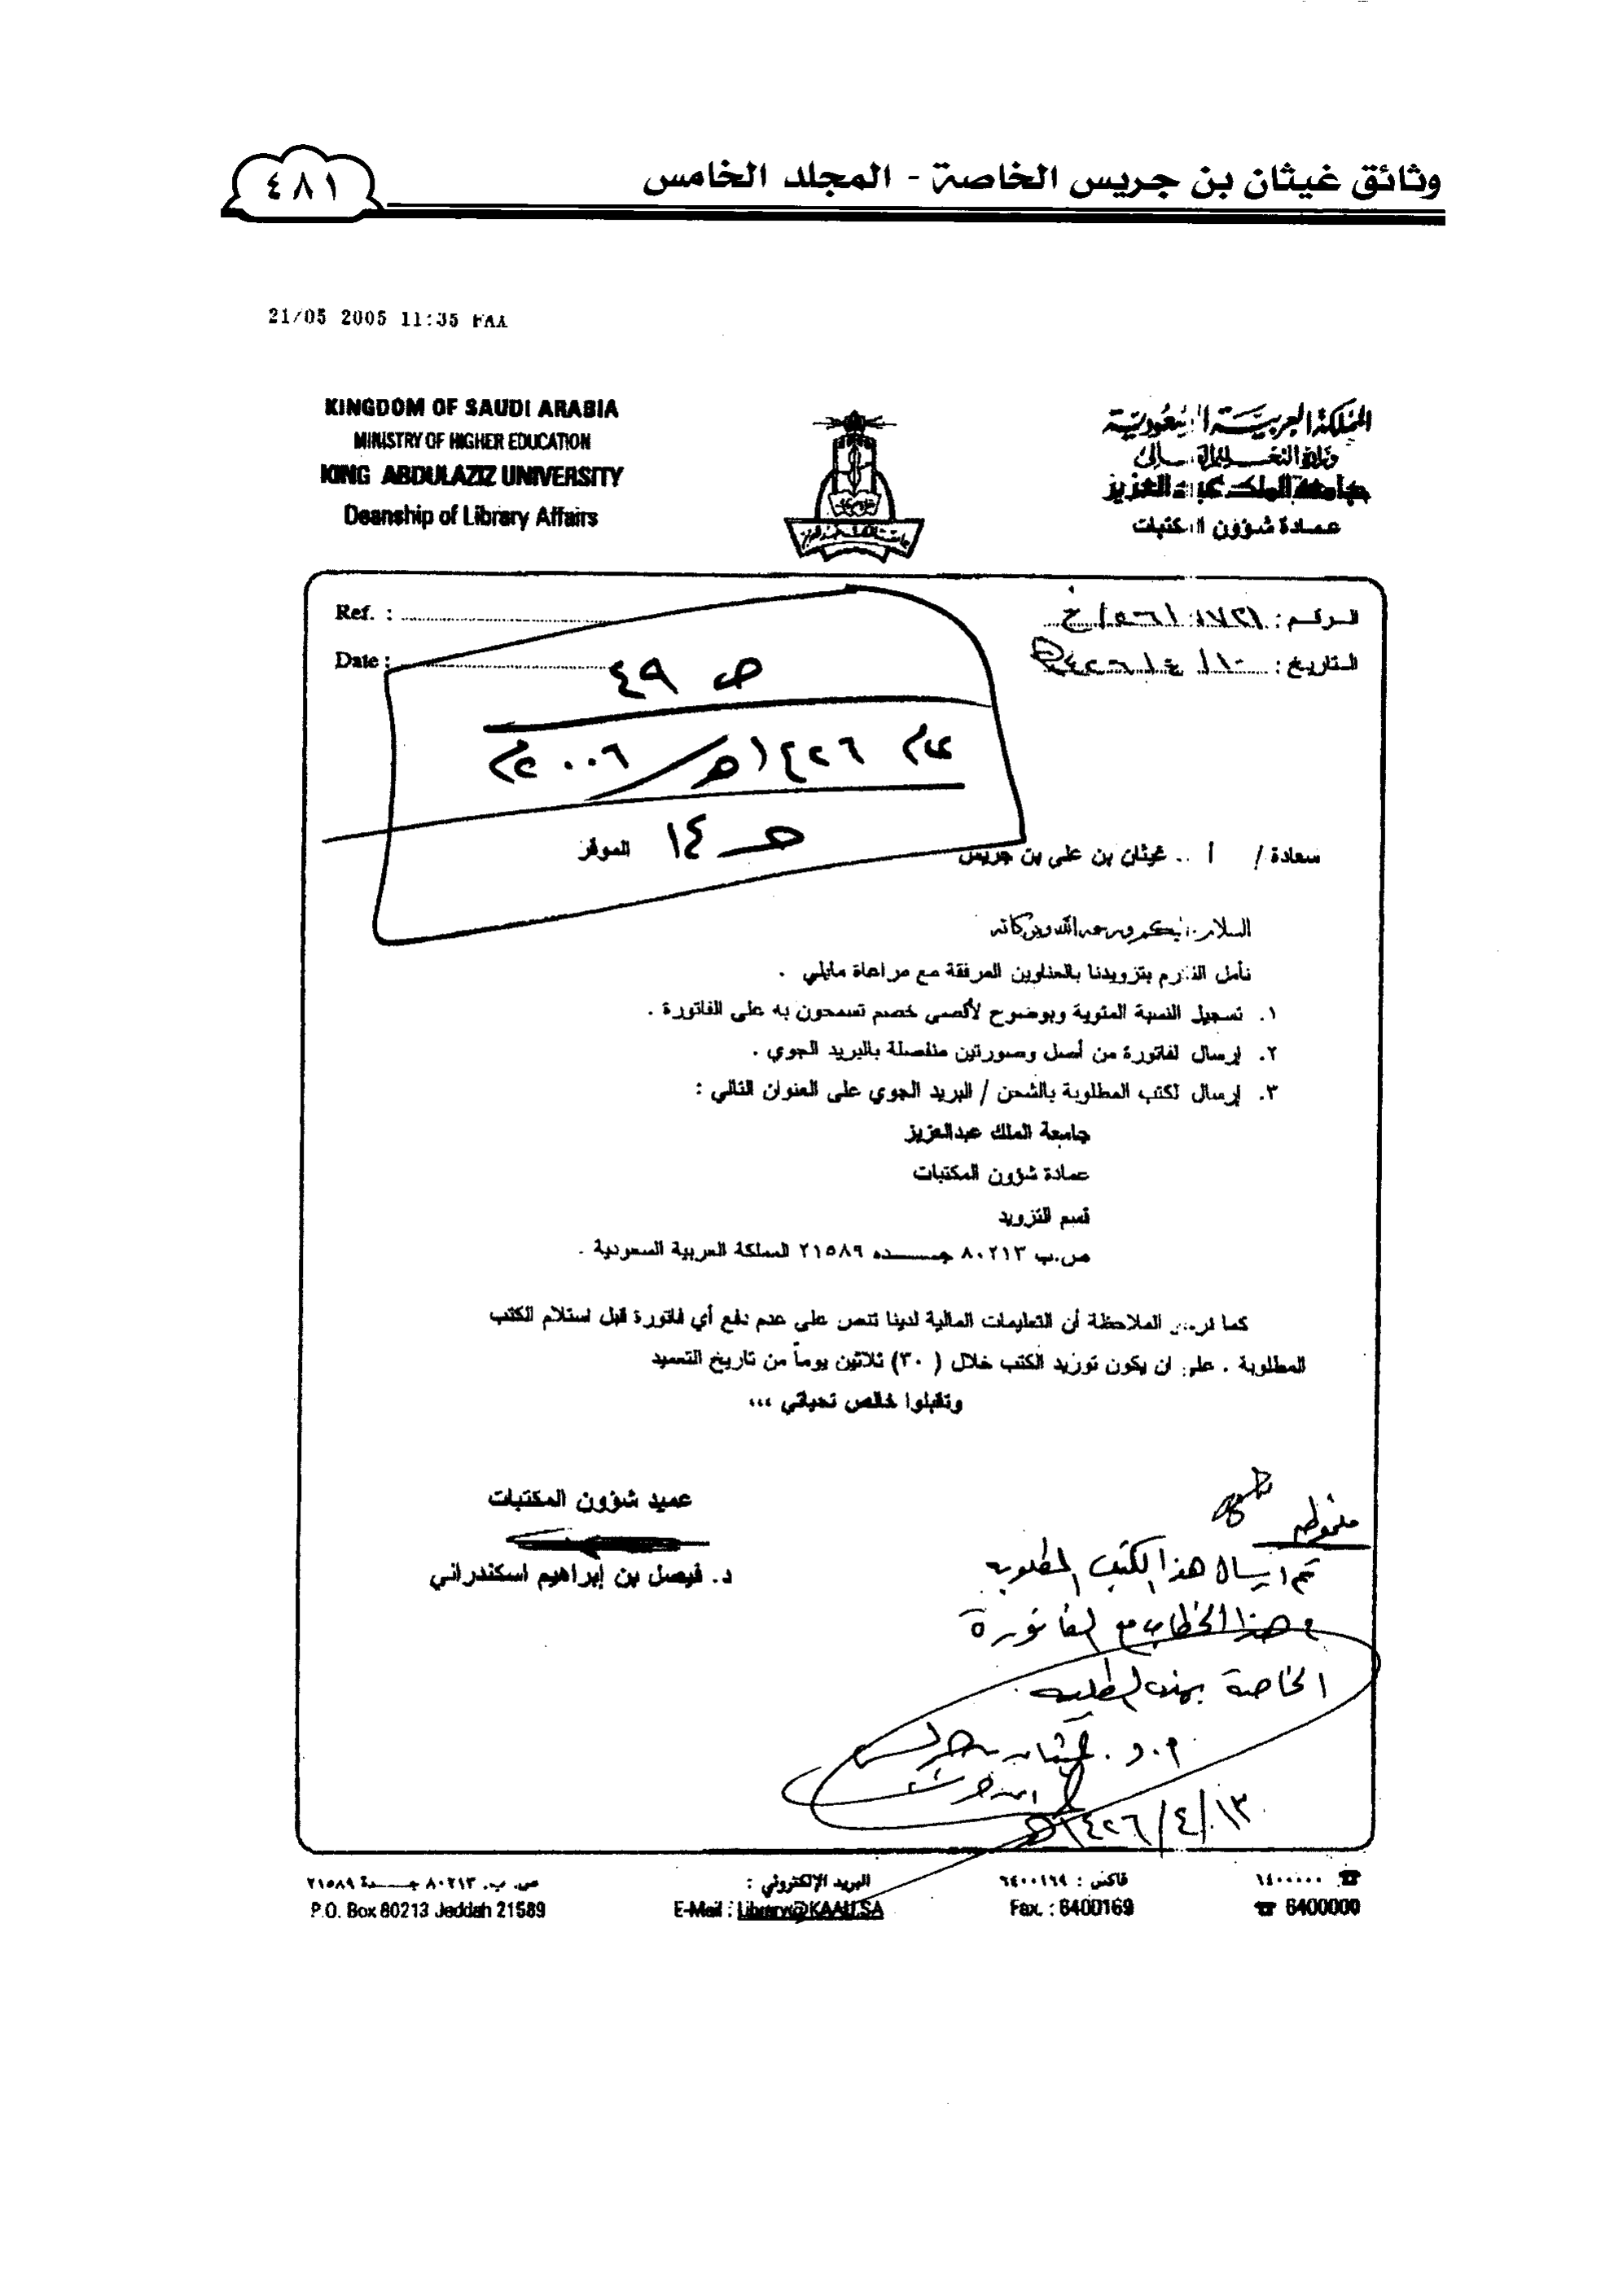 وثائق غيثان بن جريس الخاصة - المجلد الخامس
٤٨١
21/05 2005 11:35 FAX
KINGDOM OF SAUDI ARABIA
MINISTRY OF HIGHER EDUCATION
KING ABDULAZIZ UNIVERSITY
Deanship of Library Affairs
المملكة العربية السعودية
وزارة التعليم العالي
جامعة الملك عبد العزيز
عمادة شؤون المكتبات
Ref. :
Date :
الرقم :
التاريخ : ١٠/ ٤/ ١٤٢٦هـ
ص ٤٩
عام ١٤٢٦هـ / ٢٠٠٦م
حـ ١٤
سعادة / أ .. غيثان بن على بن جريس الموقر
السلام عليكم ورحمة الله وبركاته
نأمل التكرم بتزويدنا بالعناوين المرفقة مع مراعاة مايلي .
١. تسجيل النسبة المئوية وبوضوح لأقصى خصم تسمحون به على الفاتورة .
٢. إرسال لفاتورة من أصل وصورتين منفصلة بالبريد الجوي .
٣. إرسال لكتب المطلوبة بالشحن / البريد الجوي على العنوان التالي :
جامعة الملك عبدالعزيز
عمادة شؤون المكتبات
قسم التزويد
ص.ب ٨٠٢١٣ جـــده ٢١٥٨٩ المملكة العربية السعودية .
كما نرجو الملاحظة أن التعليمات المالية لدينا تنص على عدم دفع أي فاتورة قبل استلام الكتب
المطلوبة . على ان يكون توريد الكتب خلال ( ٣٠) ثلاثين يوماً من تاريخ التعميد
وتقبلوا خالص تحياتي ،،،
عميد شؤون المكتبات
د. فيصل بن إبراهيم اسكندراني
ملحوظة
تم ارسال هذا الكتب المطلوبه
وهذا الخطاب مع الفاتورة
الخاصة بهذه الطلبيه
أ.د. غيثان بن جريس
١٣/ ٤/ ١٤٢٦هـ
ص. ب. ٨٠٢١٣ جـــدة ٢١٥٨٩
البريد الإلكتروني :
فاكس : ٦٤٠٠١٦٩
☎ ٦٤٠٠٠٠٠
P.O. Box 80213 Jeddah 21589
E-Mail : Library@KAAU.SA
Fax. : 6400169
☎ 6400000